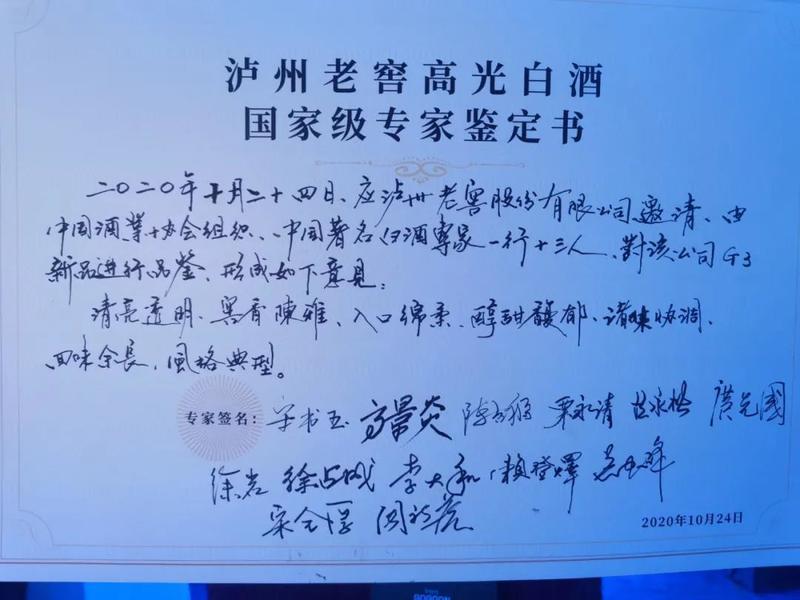 泸州老窖高光白酒
国家级专家鉴定书
二〇二〇年十月二十四日、应泸州老窖股份有限公司邀请、由
中国酒業协会组织、中国著名白酒專家一行十三人、對该公司G3
新品进行品鉴、形成如下意见：
清亮透明、窖香陳雅、入口绵柔、醇甜馥郁、诸味协调、
回味余長、風格典型。
专家签名：宋书玉 高景炎 栗永清 廣先國
徐岩 徐占成 李大和 赖登燡
宋全厚
2020年10月24日